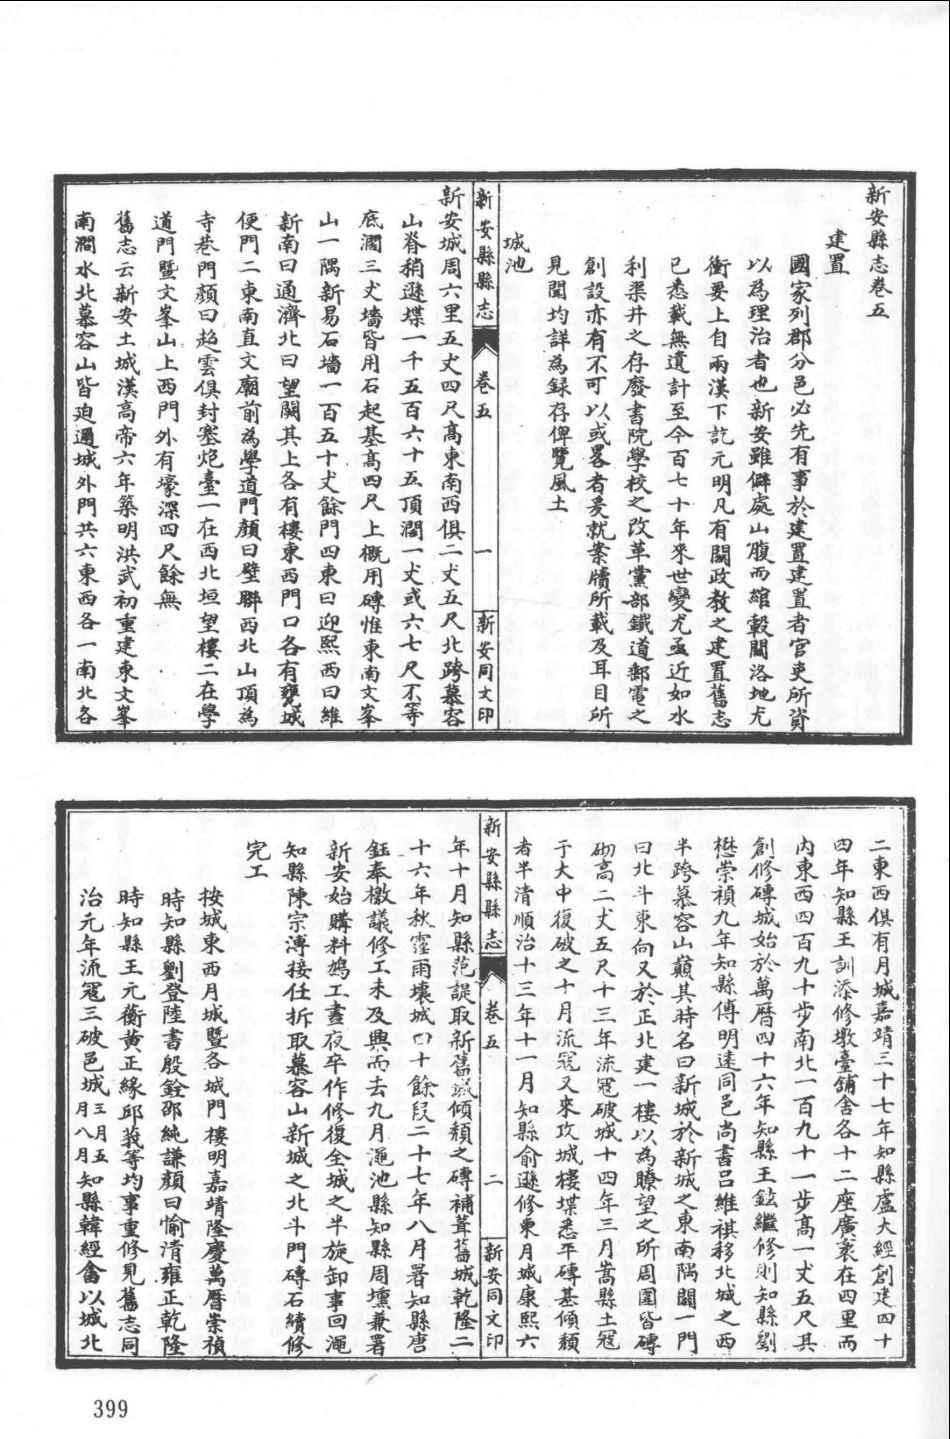 新安縣志卷五
建置
國家列郡分邑必先有事於建置建置者官吏所資
以為理治者也新安雖僻處山腹而綰轂關洛地尤
衝要上自兩漢下訖元明凡有關政教之建置舊志
已悉載無遺計至今百七十年來世變尤亟近如水
利渠井之存廢書院學校之改革黨部鐵道郵電之
創設亦有不可以或畧者爰就案牘所載及耳目所
見聞均詳為錄存俾覽風土
城池
新安縣縣志
卷五
一
新安同文印
新安城周六里五丈四尺高東南西俱二丈五尺北跨慕容
山脊稍遜堞一千五百六十五頂濶一丈或六七尺不等
底濶三丈墻皆用石起基高四尺上概用磚惟東南文峯
山一隅新易石墻一百五十丈餘門四東曰迎熙西曰維
新南曰通濟北曰望闕其上各有樓東西門口各有甕城
便門二東南直文廟前為學道門顏曰壁聯西北山頂為
寺巷門顏曰超雲俱封塞炮臺一在西北垣望樓二在學
道門暨文峯山上西門外有壕深四尺餘無
舊志云新安土城漢高帝六年築明洪武初重建東文峯
南澗水北慕容山皆迫邇城外門共六東西各一南北各
二東西俱有月城嘉靖三十七年知縣盧大經創建四十
四年知縣王訓添修墩臺舖舍各十二座廣袤在四里而
內東西四百九十步南北一百九十一步高一丈五尺其
創修磚城始於萬曆四十六年知縣王鉉繼修則知縣劉
懋崇禎九年知縣傅明逵同邑尚書呂維祺移北城之西
半跨慕容山巔其時名曰新城於新城之東南隅闢一門
曰北斗東向又於正北建一樓以為瞭望之所周圍皆磚
砌高二丈五尺十三年流寇破城十四年三月嵩縣土寇
于大中復破之十月流寇又來攻城樓堞悉平磚基傾頹
者半清順治十三年十一月知縣俞遜修東月城康熙六
新安縣縣志
卷五
二
新安同文印
年十月知縣范諟取新舊城傾頹之磚補葺舊城乾隆二
十六年秋霪雨壞城四十餘段二十七年八月署知縣唐
鈺奉檄議修工未及興而去九月澠池縣知縣周壎兼署
新安始購料鳩工晝夜卒作修復全城之半旋卸事回澠
知縣陳宗溥接任折取慕容山新城之北斗門磚石續修
完工
按城東西月城暨各城門樓明嘉靖隆慶萬曆崇禎
時知縣劉登陸書殷銓邵純謙顏曰愉清雍正乾隆
時知縣王元衡黃正緣邱峩等均事重修見舊志同
治元年流寇三破邑城三月五月八月知縣韓經畬以城北
399